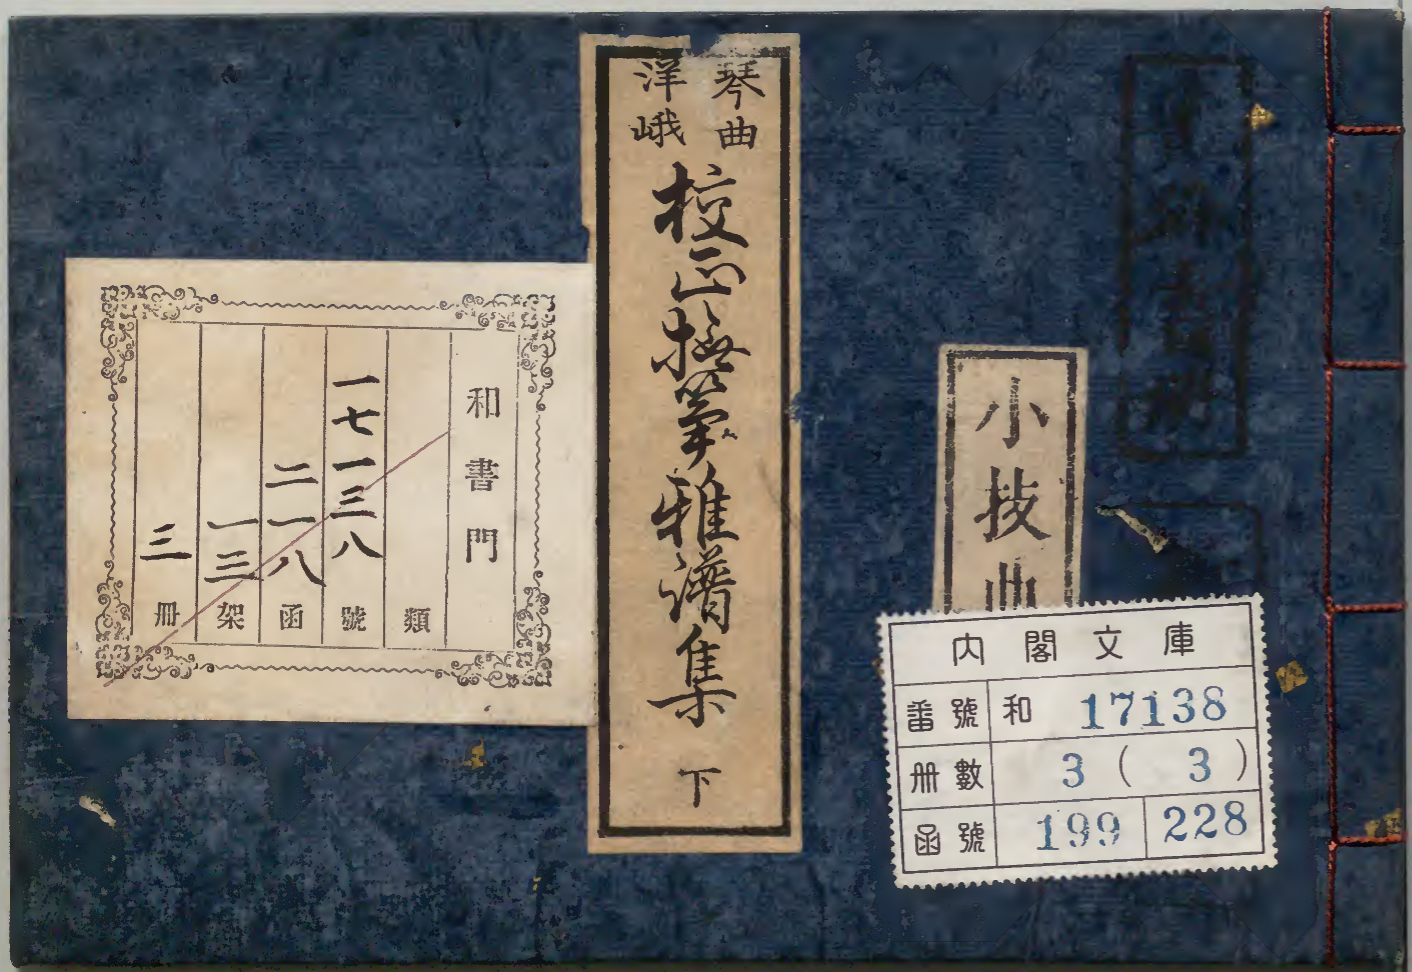 琴曲
洋峨
校正撫箏雅譜集 下
小技曲
和書門
類
一七一三八 號
二一八 函
一三 架
三 冊
内閣文庫
番號 和 17138
冊數 3 ( 3 )
函號 199 228